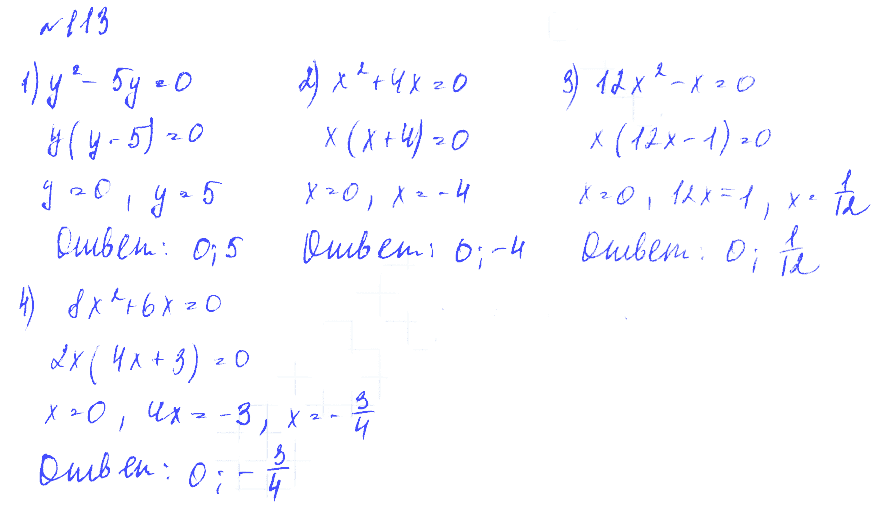 №113
1) y² - 5y = 0
y(y - 5) = 0
y = 0, y = 5
Ответ: 0; 5
2) x² + 4x = 0
x(x + 4) = 0
x = 0, x = -4
Ответ: 0; -4
3) 12x² - x = 0
x(12x - 1) = 0
x = 0, 12x = 1, x = 1/12
Ответ: 0; 1/12
4) 8x² + 6x = 0
2x(4x + 3) = 0
x = 0, 4x = -3, x = -3/4
Ответ: 0; -3/4